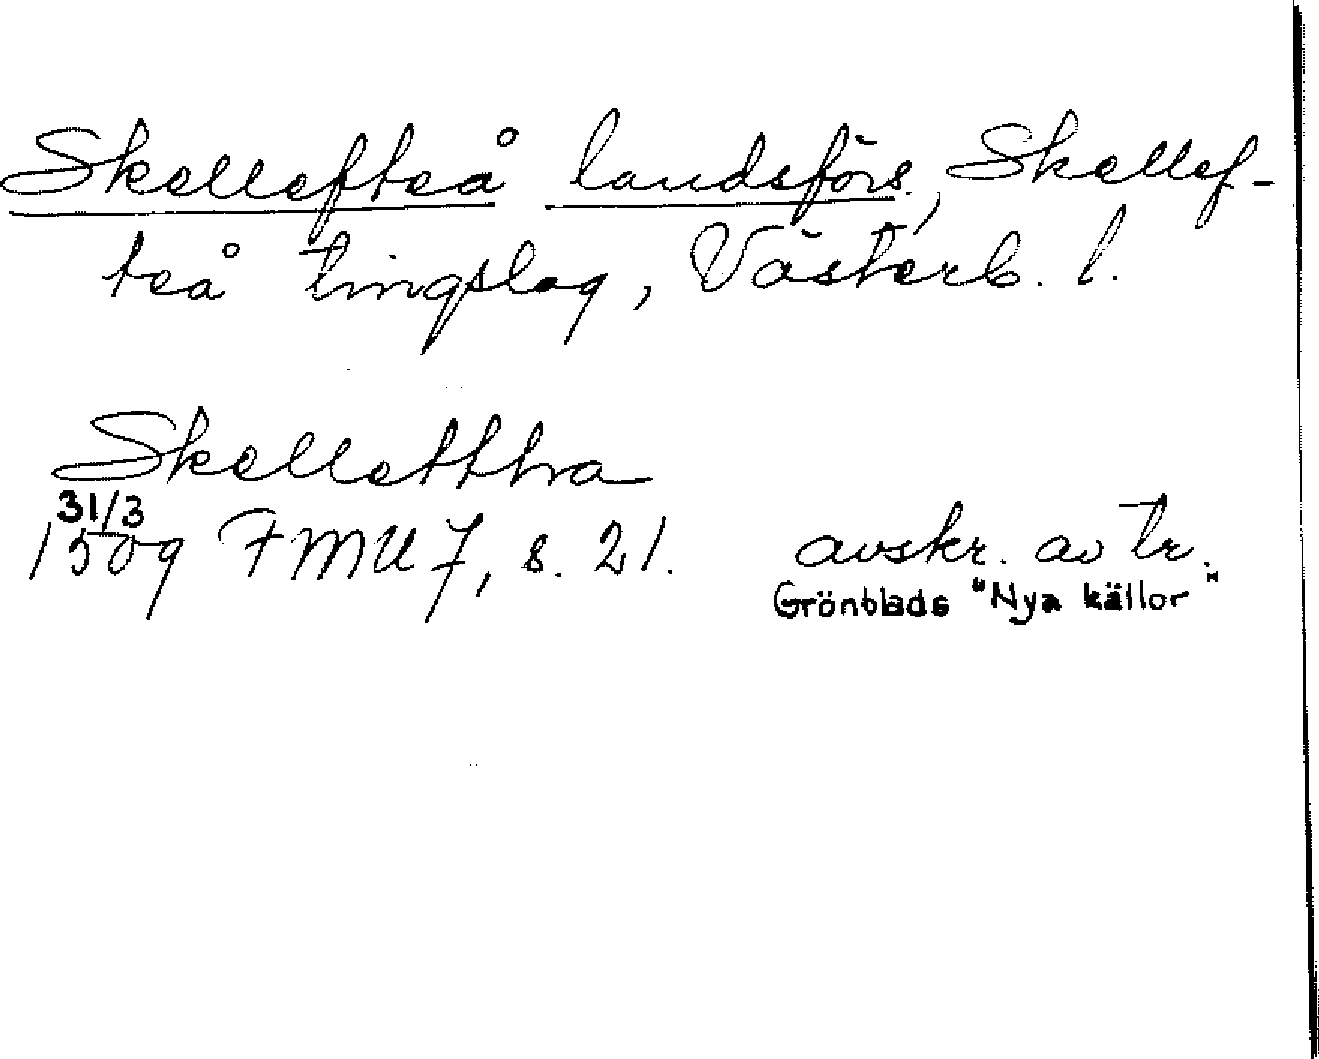 Skellefteå landsförs., Skellef-
teå tingslag, Västerb. l.
Skelletthra
31/3
1509 FMU 7, s. 21. avskr. av tr.
Grönblads "Nya källor"